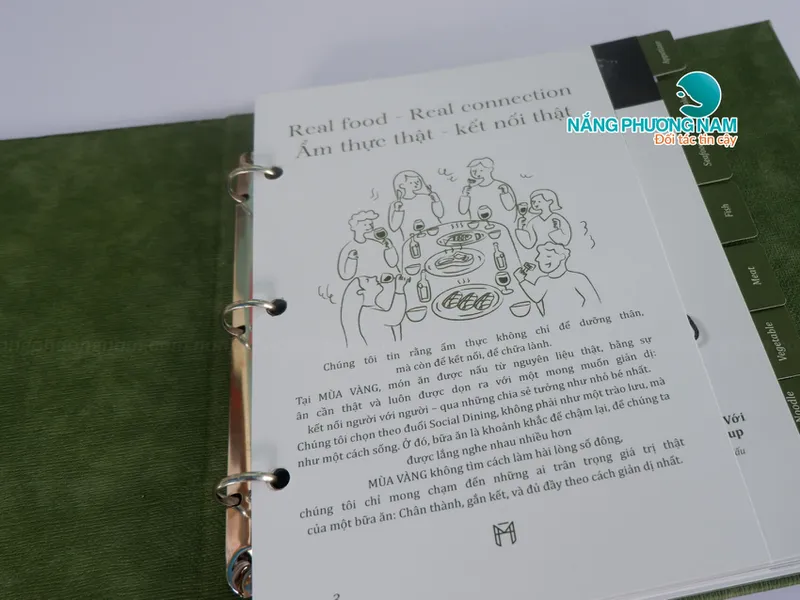 Real food - Real connection
Ẩm thực thật - kết nối thật
Chúng tôi tin rằng ẩm thực không chỉ để dưỡng thân,
mà còn để kết nối, để chữa lành.
Tại MÙA VÀNG, món ăn được nấu từ nguyên liệu thật, bằng sự
ân cần thật và luôn được dọn ra với một mong muốn giản dị:
kết nối người với người – qua những chia sẻ tưởng như nhỏ bé nhất.
Chúng tôi chọn theo đuổi Social Dining, không phải như một trào lưu, mà
như một cách sống. Ở đó, bữa ăn là khoảnh khắc để chậm lại, để chúng ta
được lắng nghe nhau nhiều hơn
MÙA VÀNG không tìm cách làm hài lòng số đông,
chúng tôi chỉ mong chạm đến những ai trân trọng giá trị thật
của một bữa ăn: Chân thành, gắn kết, và đủ đầy theo cách giản dị nhất.
3
NẮNG PHƯƠNG NAM
Đối tác tin cậy
Fish
Meat
Vegetable
Noodle
Với
up